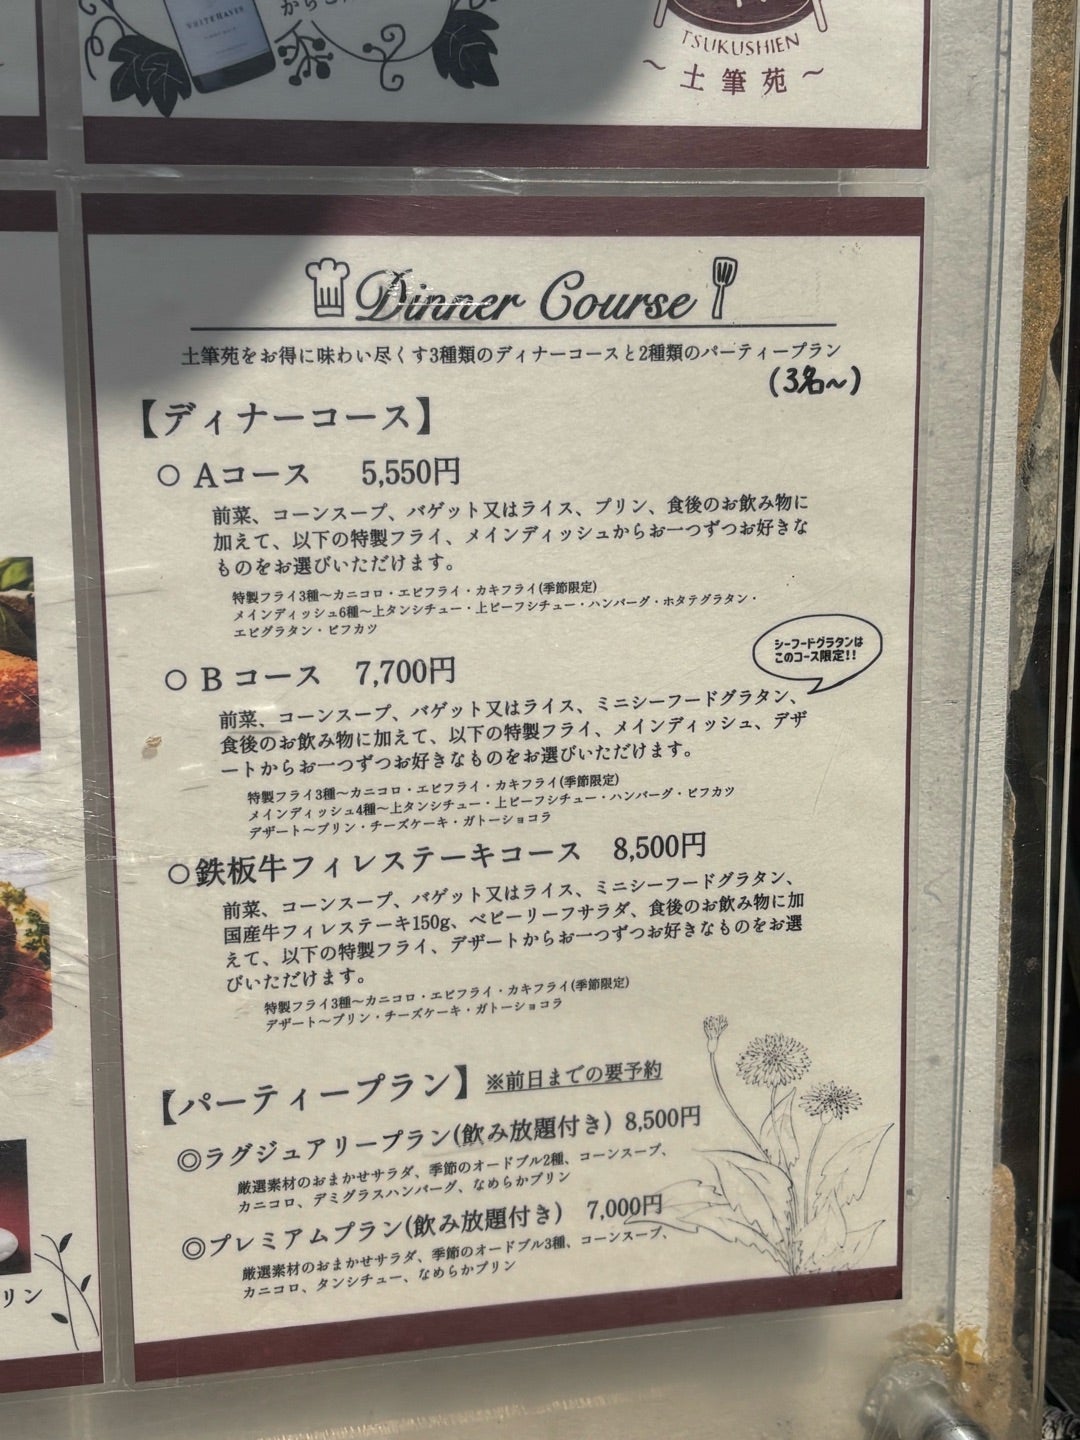 WHITEHAVEN
TSUKUSHIEN
～土筆苑～
Dinner Course
土筆苑をお得に味わい尽くす3種類のディナーコースと2種類のパーティープラン
(3名～)
【ディナーコース】
○ Aコース 5,550円
前菜、コーンスープ、バゲット又はライス、プリン、食後のお飲み物に
加えて、以下の特製フライ、メインディッシュからお一つずつお好きな
ものをお選びいただけます。
特製フライ3種～カニコロ・エビフライ・カキフライ(季節限定)
メインディッシュ6種～上タンシチュー・上ビーフシチュー・ハンバーグ・ホタテグラタン・
エビグラタン・ビフカツ
シーフードグラタンは
このコース限定!!
○ Bコース 7,700円
前菜、コーンスープ、バゲット又はライス、ミニシーフードグラタン、
食後のお飲み物に加えて、以下の特製フライ、メインディッシュ、デザ
ートからお一つずつお好きなものをお選びいただけます。
特製フライ3種～カニコロ・エビフライ・カキフライ(季節限定)
メインディッシュ4種～上タンシチュー・上ビーフシチュー・ハンバーグ・ビフカツ
デザート～プリン・チーズケーキ・ガトーショコラ
○鉄板牛フィレステーキコース 8,500円
前菜、コーンスープ、バゲット又はライス、ミニシーフードグラタン、
国産牛フィレステーキ150g、ベビーリーフサラダ、食後のお飲み物に加
えて、以下の特製フライ、デザートからお一つずつお好きなものをお選
びいただけます。
特製フライ3種～カニコロ・エビフライ・カキフライ(季節限定)
デザート～プリン・チーズケーキ・ガトーショコラ
【パーティープラン】 ※前日までの要予約
◎ラグジュアリープラン(飲み放題付き) 8,500円
厳選素材のおまかせサラダ、季節のオードブル2種、コーンスープ、
カニコロ、デミグラスハンバーグ、なめらかプリン
◎プレミアムプラン(飲み放題付き) 7,000円
厳選素材のおまかせサラダ、季節のオードブル3種、コーンスープ、
カニコロ、タンシチュー、なめらかプリン
リン